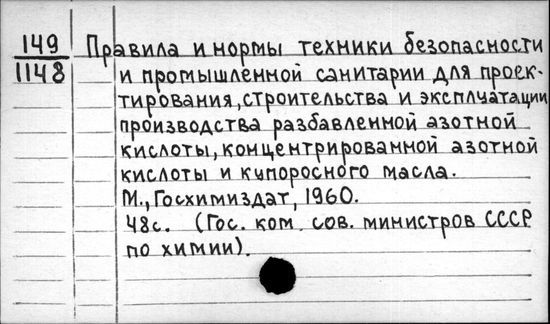 149
1148
Правила и нормы техники безопасности
и промышленной санитарии для проек-
тирования, строительства и эксплуатации
производства разбавленной азотной
кислоты, концентрированной азотной
кислоты и купоросного масла.
М., Госхимиздат, 1960.
48с. (Гос. ком. сов. министров СССР
по химии).